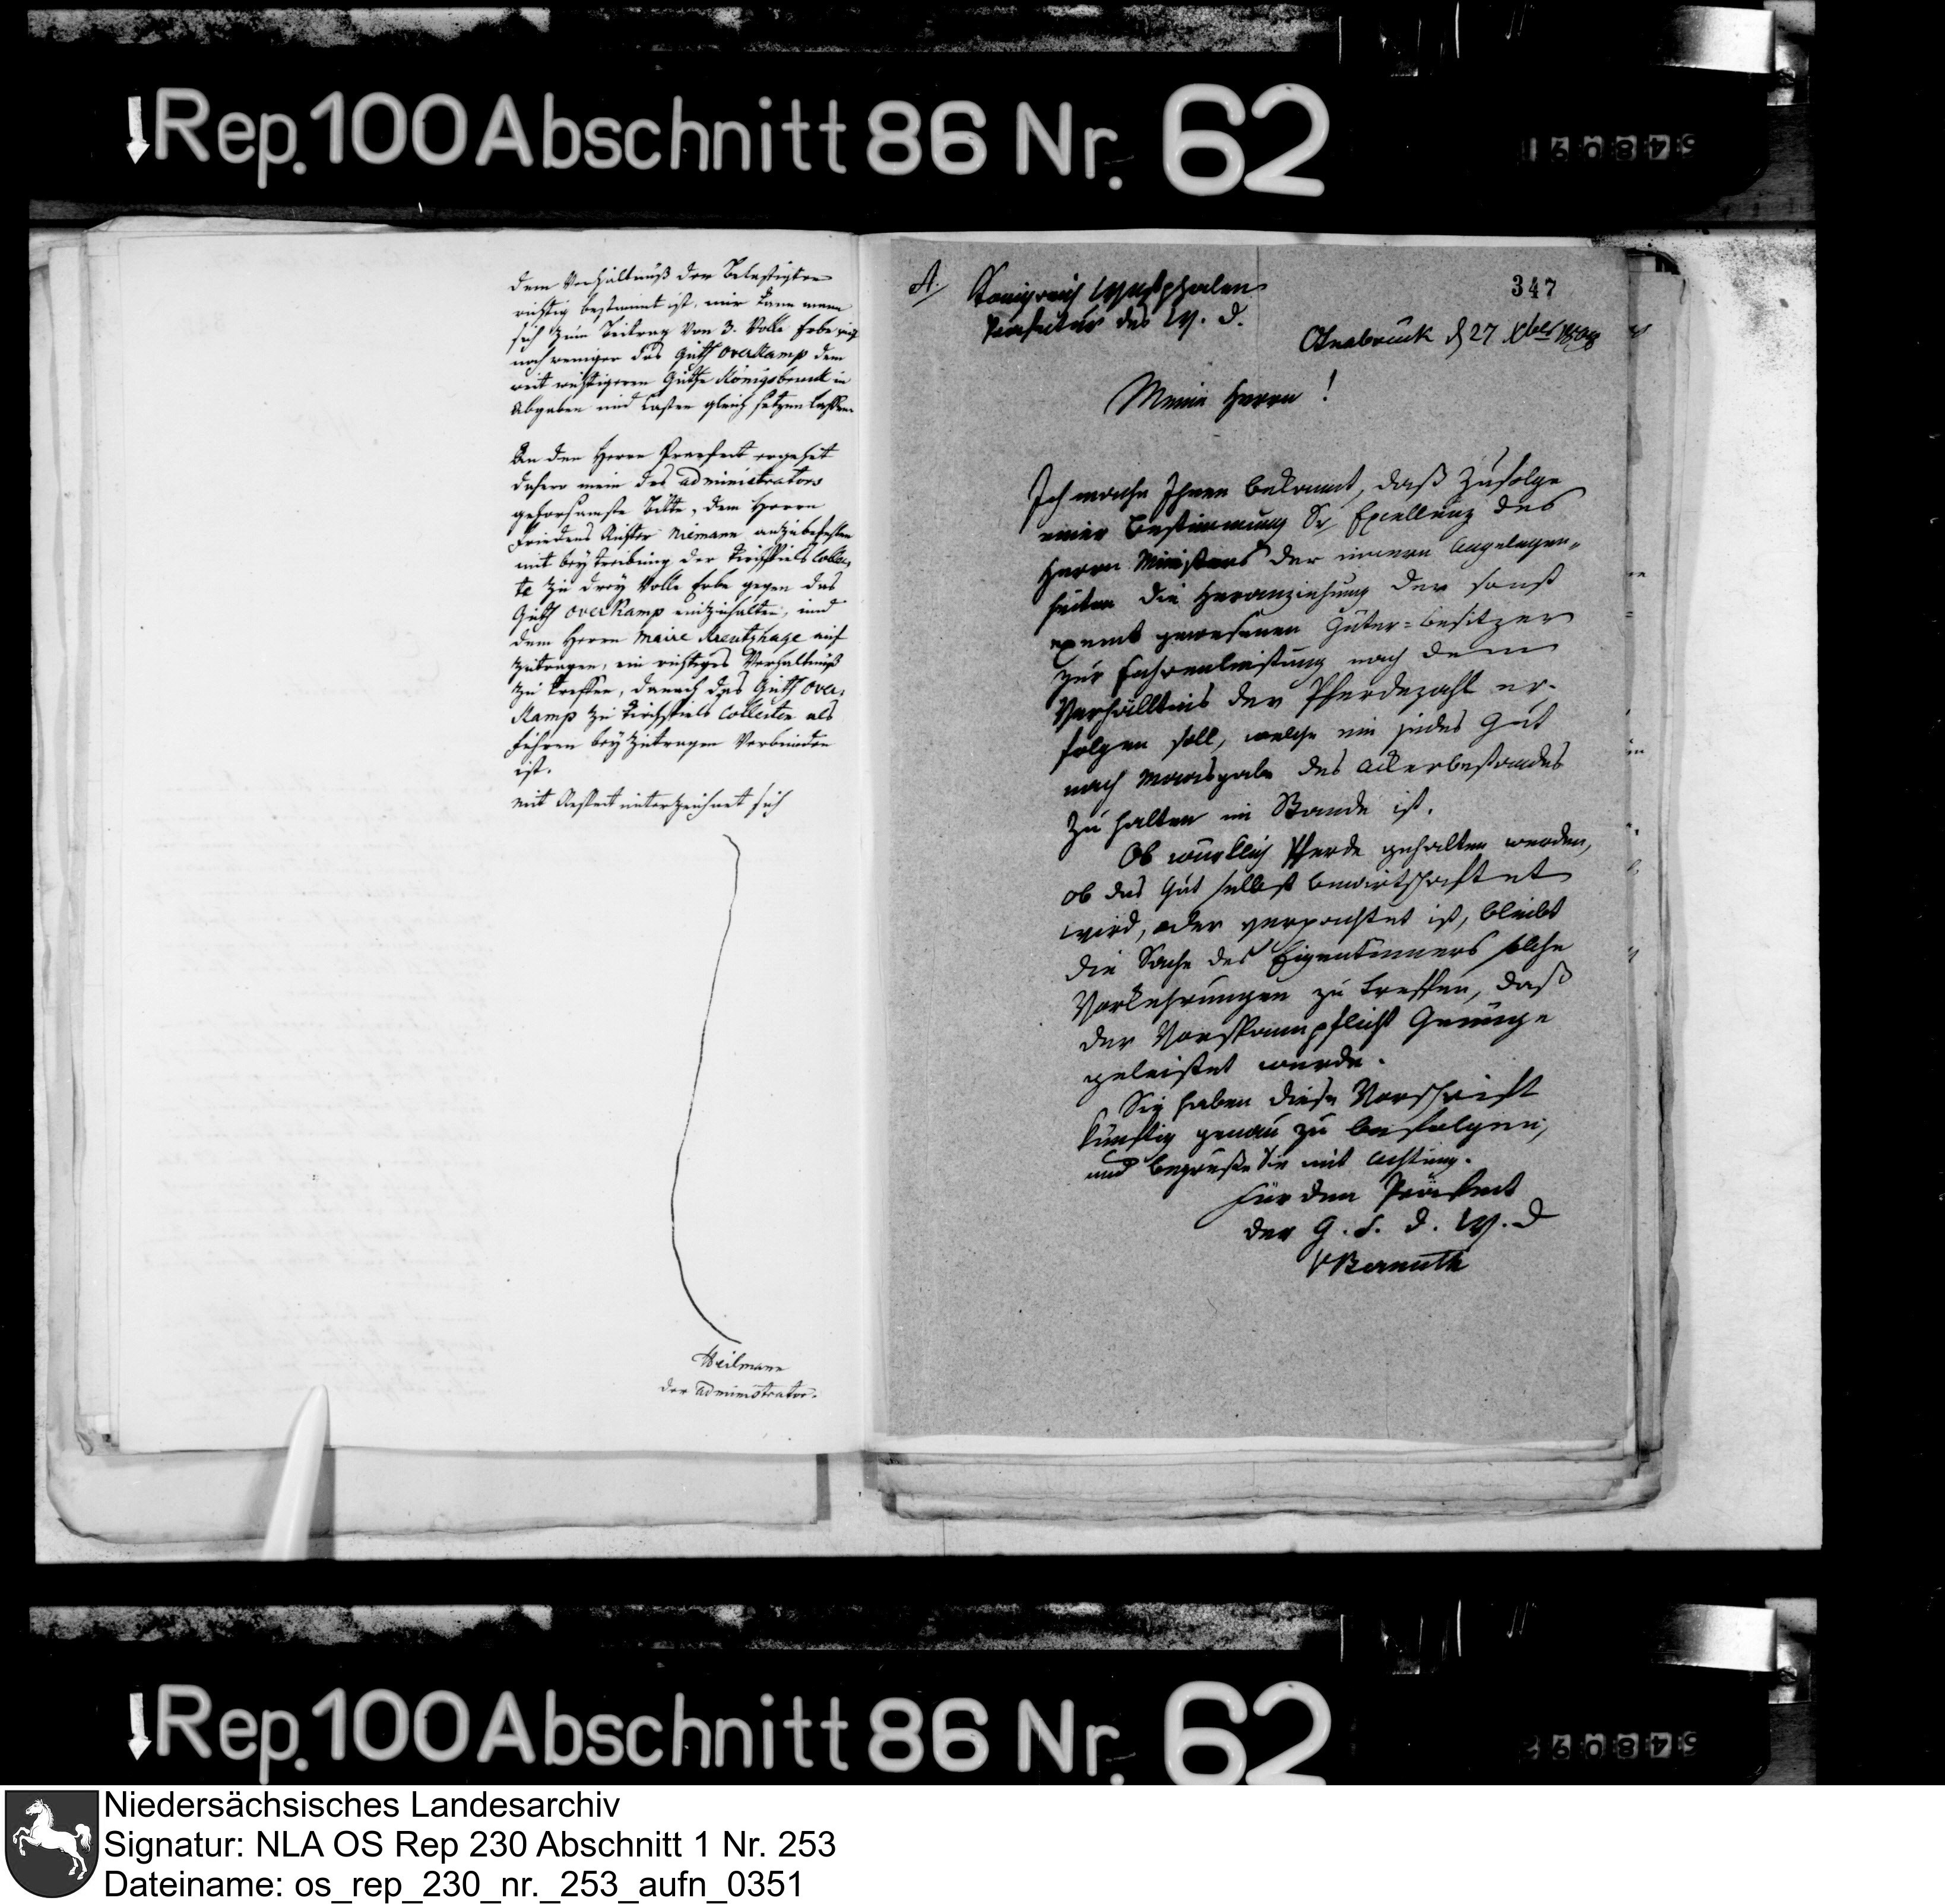 Rep. 100 Abschnitt 86 Nr. 62
dem Verhältniß der Belastigten
richtig bestimmt ist, nur kann man
sich zum Beitrag von 3. Volle Erbe nicht
noch weniger das Guth Overkamp dem
weit wichtigeren Guthe Königsbruck in
Abgaben und Lasten gleich setzen lassen.
An den Herrn Praefect ergehet
daher mein des administrators
gehorsamste Bitte, dem Herrn
Friedens Richter Niemann anzubefehlen
mit Beytreibung der Kirchspiels Collec,
te zu drey Volle Erbe gegen das
Guth Overkamp einzuhalten, und
dem Herrn Maire Kreutzhage auf
zutragen, ein richtiges Verhältniß
zu treffen, danach das Guth Over,
kamp zu Kirchspiels Collecten als
Fuhren beyzutragen Verbunden
ist.
mit Respect unterzeichnet sich
Heilmann
der administrator.
A.
Königreich Westphalen
Präfectur des W. D.
347
Osnabrück d 27 Xber 1808
Meine Herrn!
Ich mache Ihnen bekannt, daß zufolge
einer Bestimmung Sr. Excellenz des
Herrn Ministers der innern Angelegen-
heiten die Heranziehung der sonst
exemt gewesenen Güter-besitzer
zur Fuhrenleistung nach dem
Verhälltnis der Pferdezahl er-
folgen soll, welche ein jedes Gut
nach Maasgabe des Ackerbestandes
zu halten im Stande ist.
Ob würklich Pferde gehalten werden,
ob das Gut selbst bewirtschaftet
wird, oder verpachtet ist, bleibt
die Sache des Eigentümers solche
Vorkehrungen zu treffen, daß
der Vorspannpflicht Genüge
geleistet werde.
Sie haben diese Vorschrift
künftig genau zu befolgen,
und begrüße Sie mit Achtung.
Für den Präfect
der G. S. d. W. D
v Bernuth
Rep. 100 Abschnitt 86 Nr. 62
Niedersächsisches Landesarchiv
Signatur: NLA OS Rep 230 Abschnitt 1 Nr. 253
Dateiname: os_rep_230_nr._253_aufn_0351